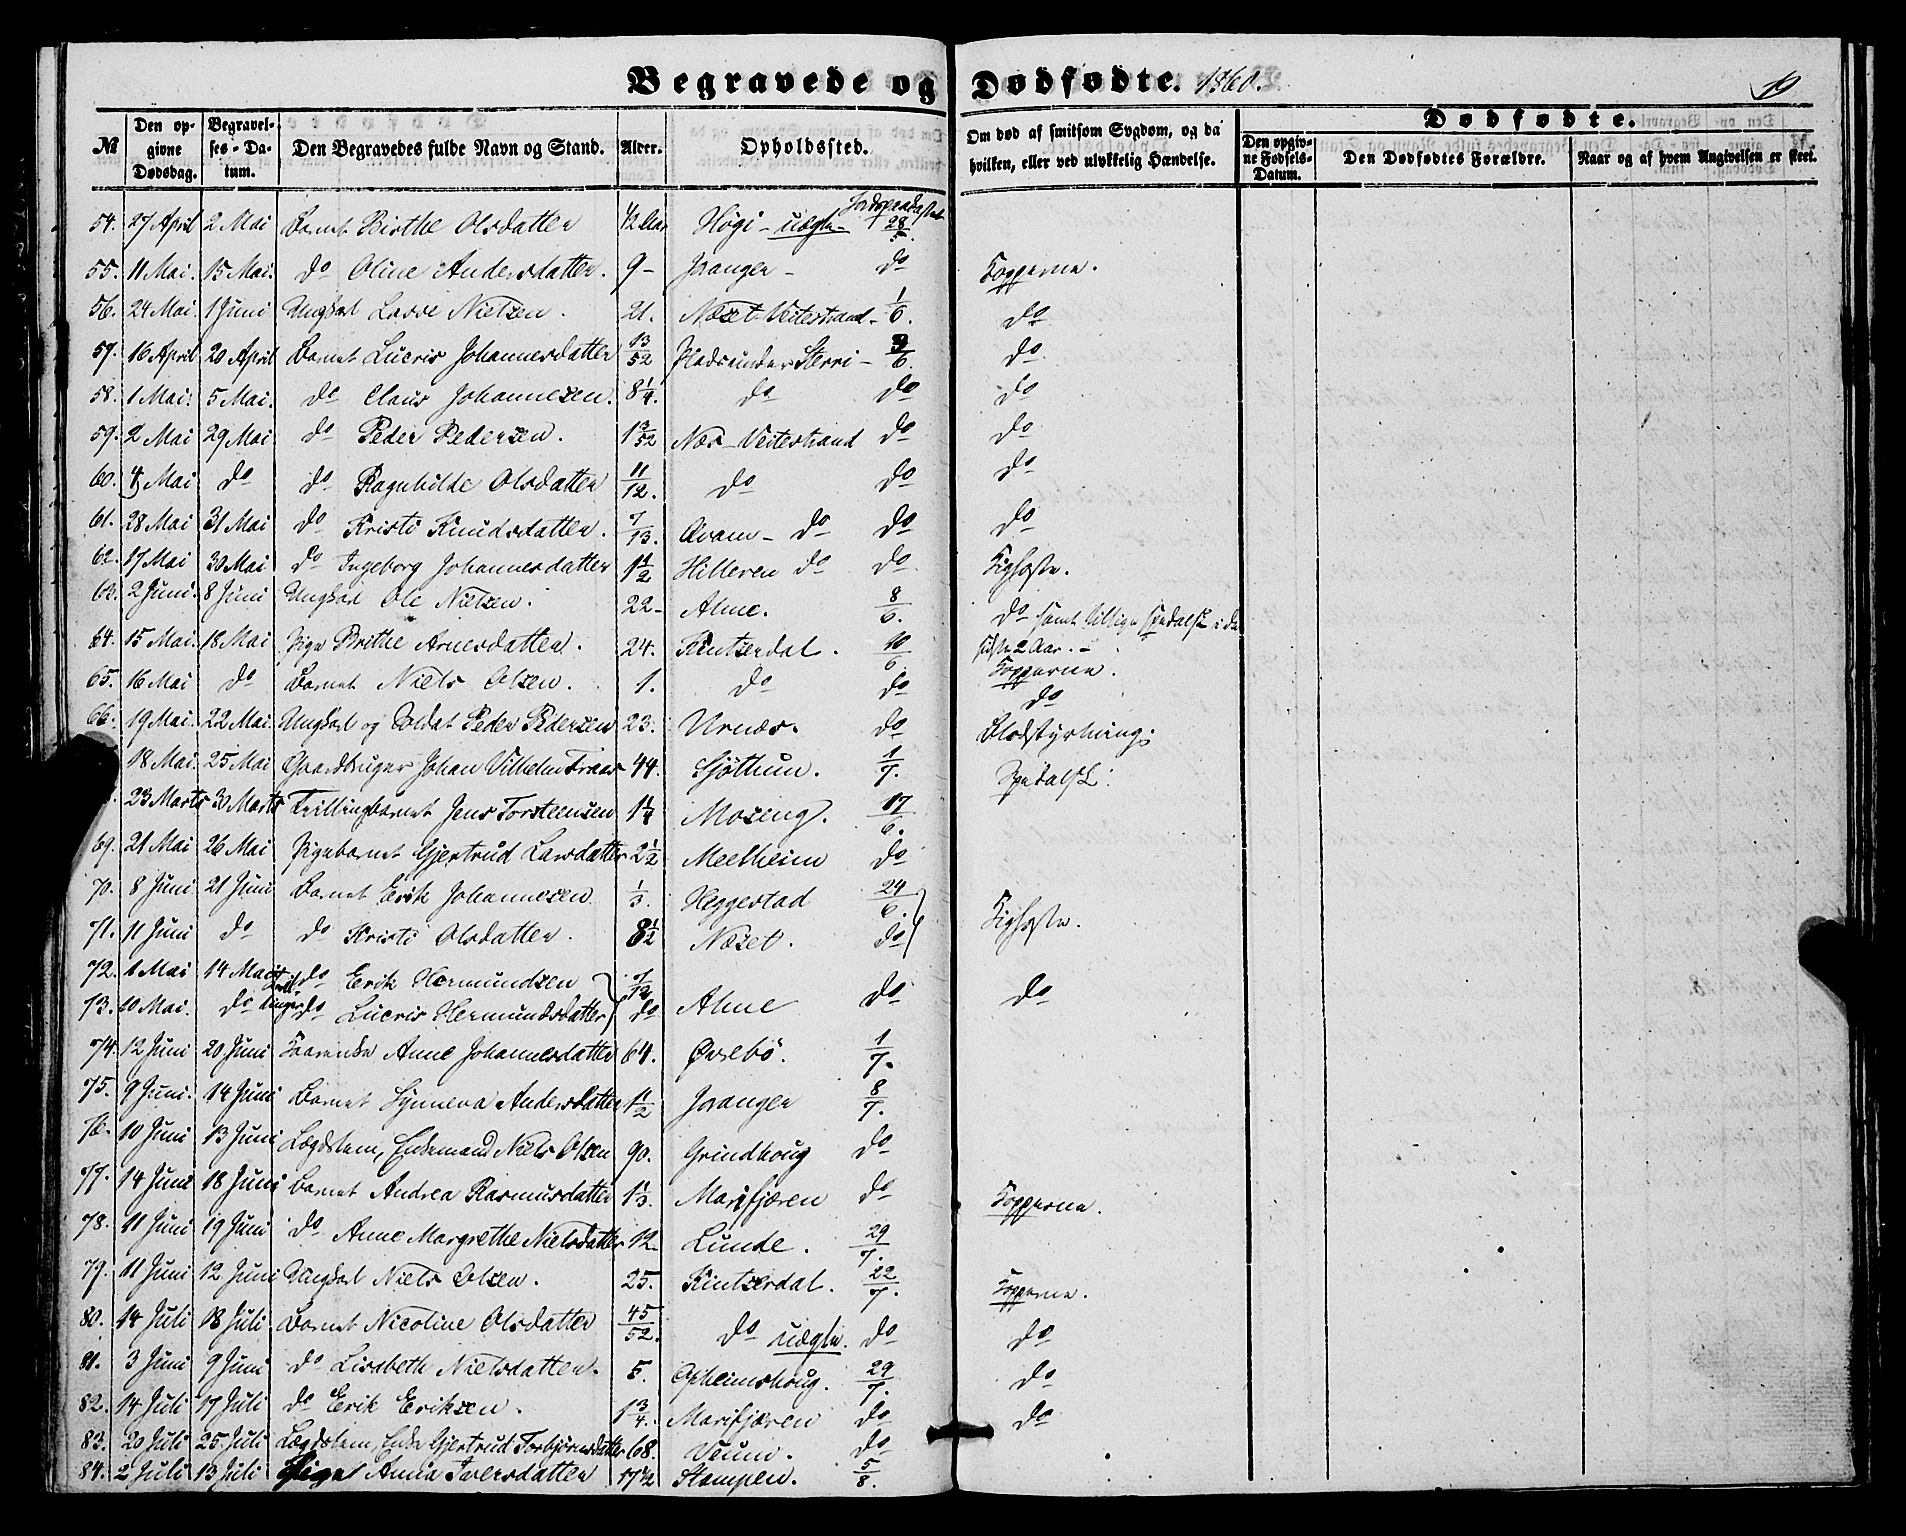 Begravede og Dødfødte. 1860. 19
№ Den opgivne Dødsdag. Begravelses-Datum. Den Begravedes fulde Navn og Stand. Alder. Opholdssted. Om død af smitsom Sygdom, og da hvilken, eller ved ulykkelig Hændelse. Dødfødte.
Den opgivne Fødsels-Datum. Den Dødfødtes Forældre. Naar og af hvem Angivelsen er skeet.
54. 27 April 2 Mai Barnet Birthe Olsdatter 1/2 Aar Høgi - uægte - Jordspaakastet 28/5.
55. 11 Mai. 15 Mai. do Oline Andersdatter. 9 - Joranger - do Kopperne.
56. 24 Mai 1 Juni Ungkarl Lasse Nielsen. 21. Næset Veitestrand - 1/6. do
57. 16 April 20 April Barnet Lucris Johannesdatter 13/52 Pladsen under Skerri - 3/6. do
58. 1 Mai. 5 Mai. do Claus Johannesen. 8 1/4. do do do
59. 2 Mai 29 Mai do Peder Pedersen. 1 3/52 Næs - Veitestrand do do
60. 4 Mai do do Ragnhilde Olsdatter 11/12. do do do
61. 28 Mai 31 Mai do Kristi Knudsdatter. 7/13. Qvam - do do do
62. 17 Mai 30 Mai do Ingeborg Johannesdatter 1 1/2 Hilleren do do Kighoste.
63. 2 Juni. 8 Juni Ungkarl Ole Nielsen. 22 - Alme. 8/6. do samt tillige spedalsk i de
64. 15 Mai. 18 Mai Pige Brithe Arnesdatter. 24. Kintserdal. 10/6 sidste 2 Aar. -
65. 16 Mai do Barnet Niels Olsen. 1. do do Kopperne.
do
66. 19 Mai. 22 Mai. Ungkarl og Soldat Peder Pedersen 23. Urnæs. do Blodstyrtning.
18 Mai. 25 Mai Gaardbruger Johan Vilhelm Fraas 44. Sjøthun. 1/7. Spedalsk.
23 Marts 30 Marts Tvillingbarnet Jens Torsteensen 1 1/4 Moseng. 17/6.
69. 21 Mai 26 Mai Pigebarnet Gjertrud Larsdatter 2 1/2 Meelheim do
70. 8 Juni 21 Juni Barnet Erik Johannesen 1/3. Heggestad 24/6.
71. 11 Juni do do Kristi Olsdatter. 8 1/2 Næset. do Kighoste.
72. 1 Mai 14 Mai do Erik Hermundsen 7/12
73. 10 Mai. do Tvillinger do Lucris Hermundsdatter do Alme do do
74. 12 Juni 20 Juni Kaarenke Anne Johannesdatter 64. Øvrebø. 1/7.
75. 9 Juni. 14 Juni Barnet Synneva Andersdatter 1 1/2 Joranger 8/7.
76. 10 Juni 13 Juni Lægdslem, Enkemand Niels Olsen 90. Grindhoug do
77. 14 Juni 18 Juni Barnet Andrea Rasmusdatter 1 1/3. Marifjæren do Kopperne.
78. 11 Juni 19 Juni do Anne Margrethe Nielsdatter 12. Lunde. 29/7.
79. 11 Juni 12 Juni Ungkarl Niels Olsen. 25. Kintserdal. 22/7. Kopperne.
80. 14 Juli 18 Juli Barnet Nicoline Olsdatter 45/52. do uægte. do do
81. 3 Juni 9 Juni do Lisabeth Nielsdatter. 5. Opheimshoug. 29/7. do
82. 14 Juli 17 Juli do Erik Eriksen. 1 3/4. Marifjæren do do
83. 20 Juli 25 Juli Lægdslem, Enke Gjertrud Torbjørnsdatter 68. Veum. do
84. 2 Juli 13 Juli Pige Anna Iversdatter 17 1/2 Stampen. 5/8.